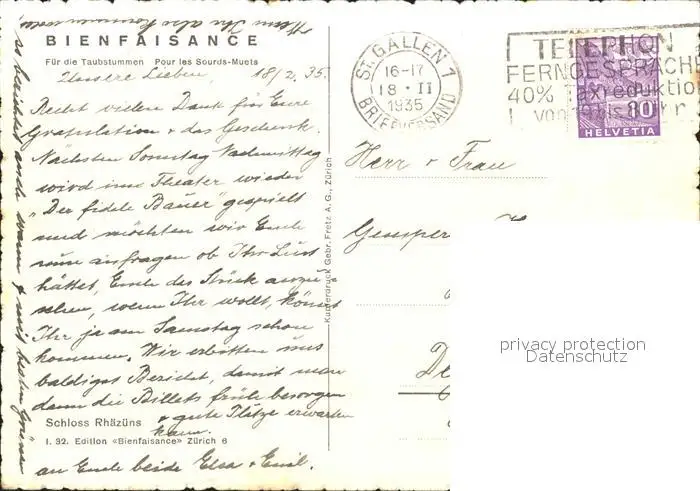 Wenn Ihr also kommen wollt,
so berichtet
BIENFAISANCE
Für die Taubstummen Pour les Sourds-Muets
Unsere Lieben, 18/2. 35.
Recht vielen Dank für Eure
Gratulation & das Geschenk.
Nächsten Sonntag Nachmittag
wird im Theater wieder
„Der fidele Bauer" gespielt
und möchten wir Euch
nun anfragen ob Ihr Lust
hättet, Euch das Stück anzu-
sehen, wenn Ihr wollt, könnt
Ihr ja am Samstag schon
kommen. Wir erbitten uns
baldigst Bericht, damit man
dann die Billets früh besorgen
& gute Plätze erwarten
kann.
Schloss Rhäzüns
I. 32. Edition «Bienfaisance» Zürich 6
an Euch beide Elsa & Emil.
Kupferdruck Gebr. Fretz A. G., Zürich
ST. GALLEN 1
16-17
18 · II
1935
BRIEFVERSAND
TELEPHON
FERNGESPRÄCHE
40% Taxreduktion
von
HELVETIA
10
Herr & Frau
Gemper
privacy protection
Datenschutz